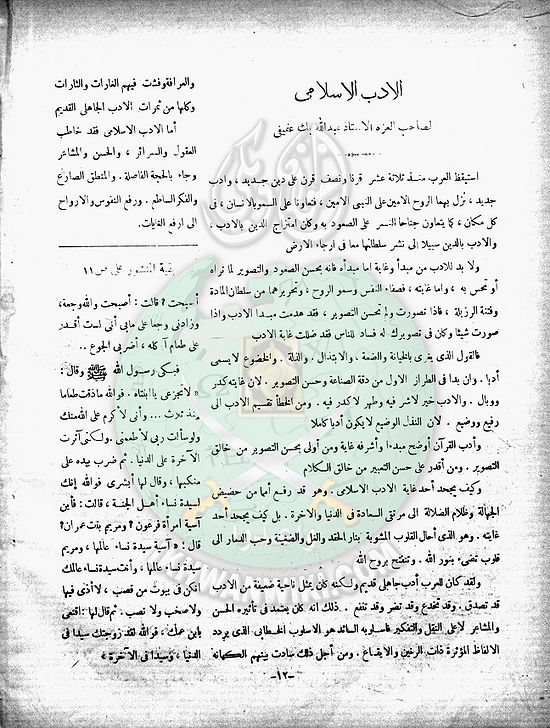 الأدب الإسلامى
لصاحب العزة الأستاذ عبد الله بك عفيفى
استيقظ العرب منذ ثلاثة عشر قرنا ونصف قرن على دين جديد ، وأدب
جديد ، نزل بهما الروح الأمين على النبى الأمين ، فتعاونا على السمو بالانسان ، فى
كل مكان ، كما يتعاون جناحا النسر على الصعود به وكان امتزاج الدين بالأدب ،
والأدب بالدين سبيلا إلى نشر سلطانهما معا فى أرجاء الأرض
ولا بد للأدب من مبدأ وغاية اما مبدأه فانه يحسن الصعود والتصوير لما تراه
أو تحس به ، واما غايته ، فصفاء النفس وسمو الروح ، وتحريرهما من سلطان المادة
وفتنة الرزيلة ، فاذا تصورت ولم تحسن التصوير ، فقد هدمت مبدأ الأدب واذا
صورت شيئا وكان فى تصويرك له فساد للناس فقد ضللت غاية الأدب
فالقول الذى يغرى بالخيانة والضعة ، والابتذال . والذلة . والخضوع لا يسمى
أدبا . وان بدا فى الطراز الاول من دقة الصناعة وحسن التصوير . لان غايته كدر
ووبال . والادب خير لا شر فيه وطهر لا كدر فيه . ومن الخطأ تقسيم الادب الى
رفيع ووضيع . لان النذل الوضيع لا يكون أدبا كاملا
وأدب القرآن أوضح مبدءا وأشرفه غاية ومن أولى بحسن التصوير من خالق
التصوير . ومن أقدر على حسن التعبير من خالق الكلام
وكيف يجحد أحد غاية الادب الاسلامى . وهو قد رفع أمما من حضيض
الجهالة وظلام الضلالة الى مرتقى السعادة فى الدنيا والآخرة . بل كيف يجحد أحد
غايته . وهو الذى أحال القلوب المشوبة بنار الحقد والغل والضغينة وحب الدمار الى
قلوب تضىء بنور الله . وتنفتح بروح الله
ولقد كان للعرب أدب جاهلى قديم ولكنه كان يمثل ناحية ضعيفة من الادب
قد تصدق . وقد تخدع وقد تضر وقد تنفع . ذلك انه كان يعتمد فى تأثيره الحس
والمشاعر لا على العقل والتفكير فاسلوبه السائد هو الاسلوب الخطابى الذى يردد
الالفاظ المؤثرة ذات الرنين والايقاع . ومن أجل ذلك سادت بينهم الكهانة
والعرافة وفشت فيهم الغارات والثارات
وكلها من ثمرات الادب الجاهلى القديم
أما الادب الاسلامى فقد خاطب
العقول والسرائر ، والحس والمشاعر
وجاء بالحجة الفاصلة . والمنطق الصارع
والفكر الساطع . ورفع النفوس والارواح
الى ارفع الغايات .
بقية المنشور على ص ١١
أصبحت ؟ قالت : أصبحت والله وجعة،
وزادنى وجعا على مابى أنى لست أقدر
على طعام آكله ، أضر بى الجوع ..
فبكى رسول الله ﷺ وقال :
« لا تجزعى يا ابنتاه . فوالله ماذقت طعاما
منذ ثلاث ... وأنى لأكرم على الله منك
ولو سألت ربى لأطعمنى . ولكنى آثرت
الآخرة على الدنيا . ثم ضرب بيده على
منكبها ، وقال لها أبشرى فوالله إنك
لسيدة نساء أهل الجنة ، قالت : فأين
آسية امرأة فرعون ؟ ومريم بنت عمران ؟
قال : « آسية سيدة نساء عالمها ، ومريم
سيدة نساء عالمها ، وأنت سيدة نساء عالمك
انكن فى بيوت من قصب ، لا أذى فيها
ولا صخب ولا نصب . ثم قال لها : اقنعى
بابن عمك ، فوالله لقد زوجتك سيدا فى
الدنيا ، وسيدا فى الآخرة »
- ١٢ -